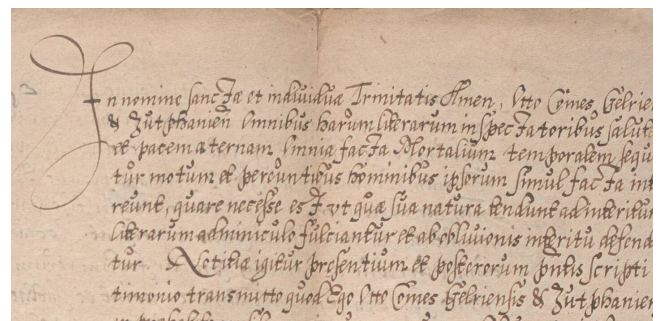 In nomine sanctæ et indiuiduæ Trinitatis Amen, Otto Comes Gelrien
& Zutphanien̄ Omnibus harum literarum inspectatoribus salute
et pacem æternam Omnia facta Mortalium temporalem sequ
tur motum et pereuntibus hominibus ipsorum simul facta int
reunt, quare necesse est vt quæ sua natura tendunt ad interitum
literarum adminiculo fulciantur et ab oblivionis interitu defend
tur. Notitiæ igitur presentium et posterorum pn̄tis scripti
timonio transmitto quod Ego Otto Comes Gelriensis & Zutphanien